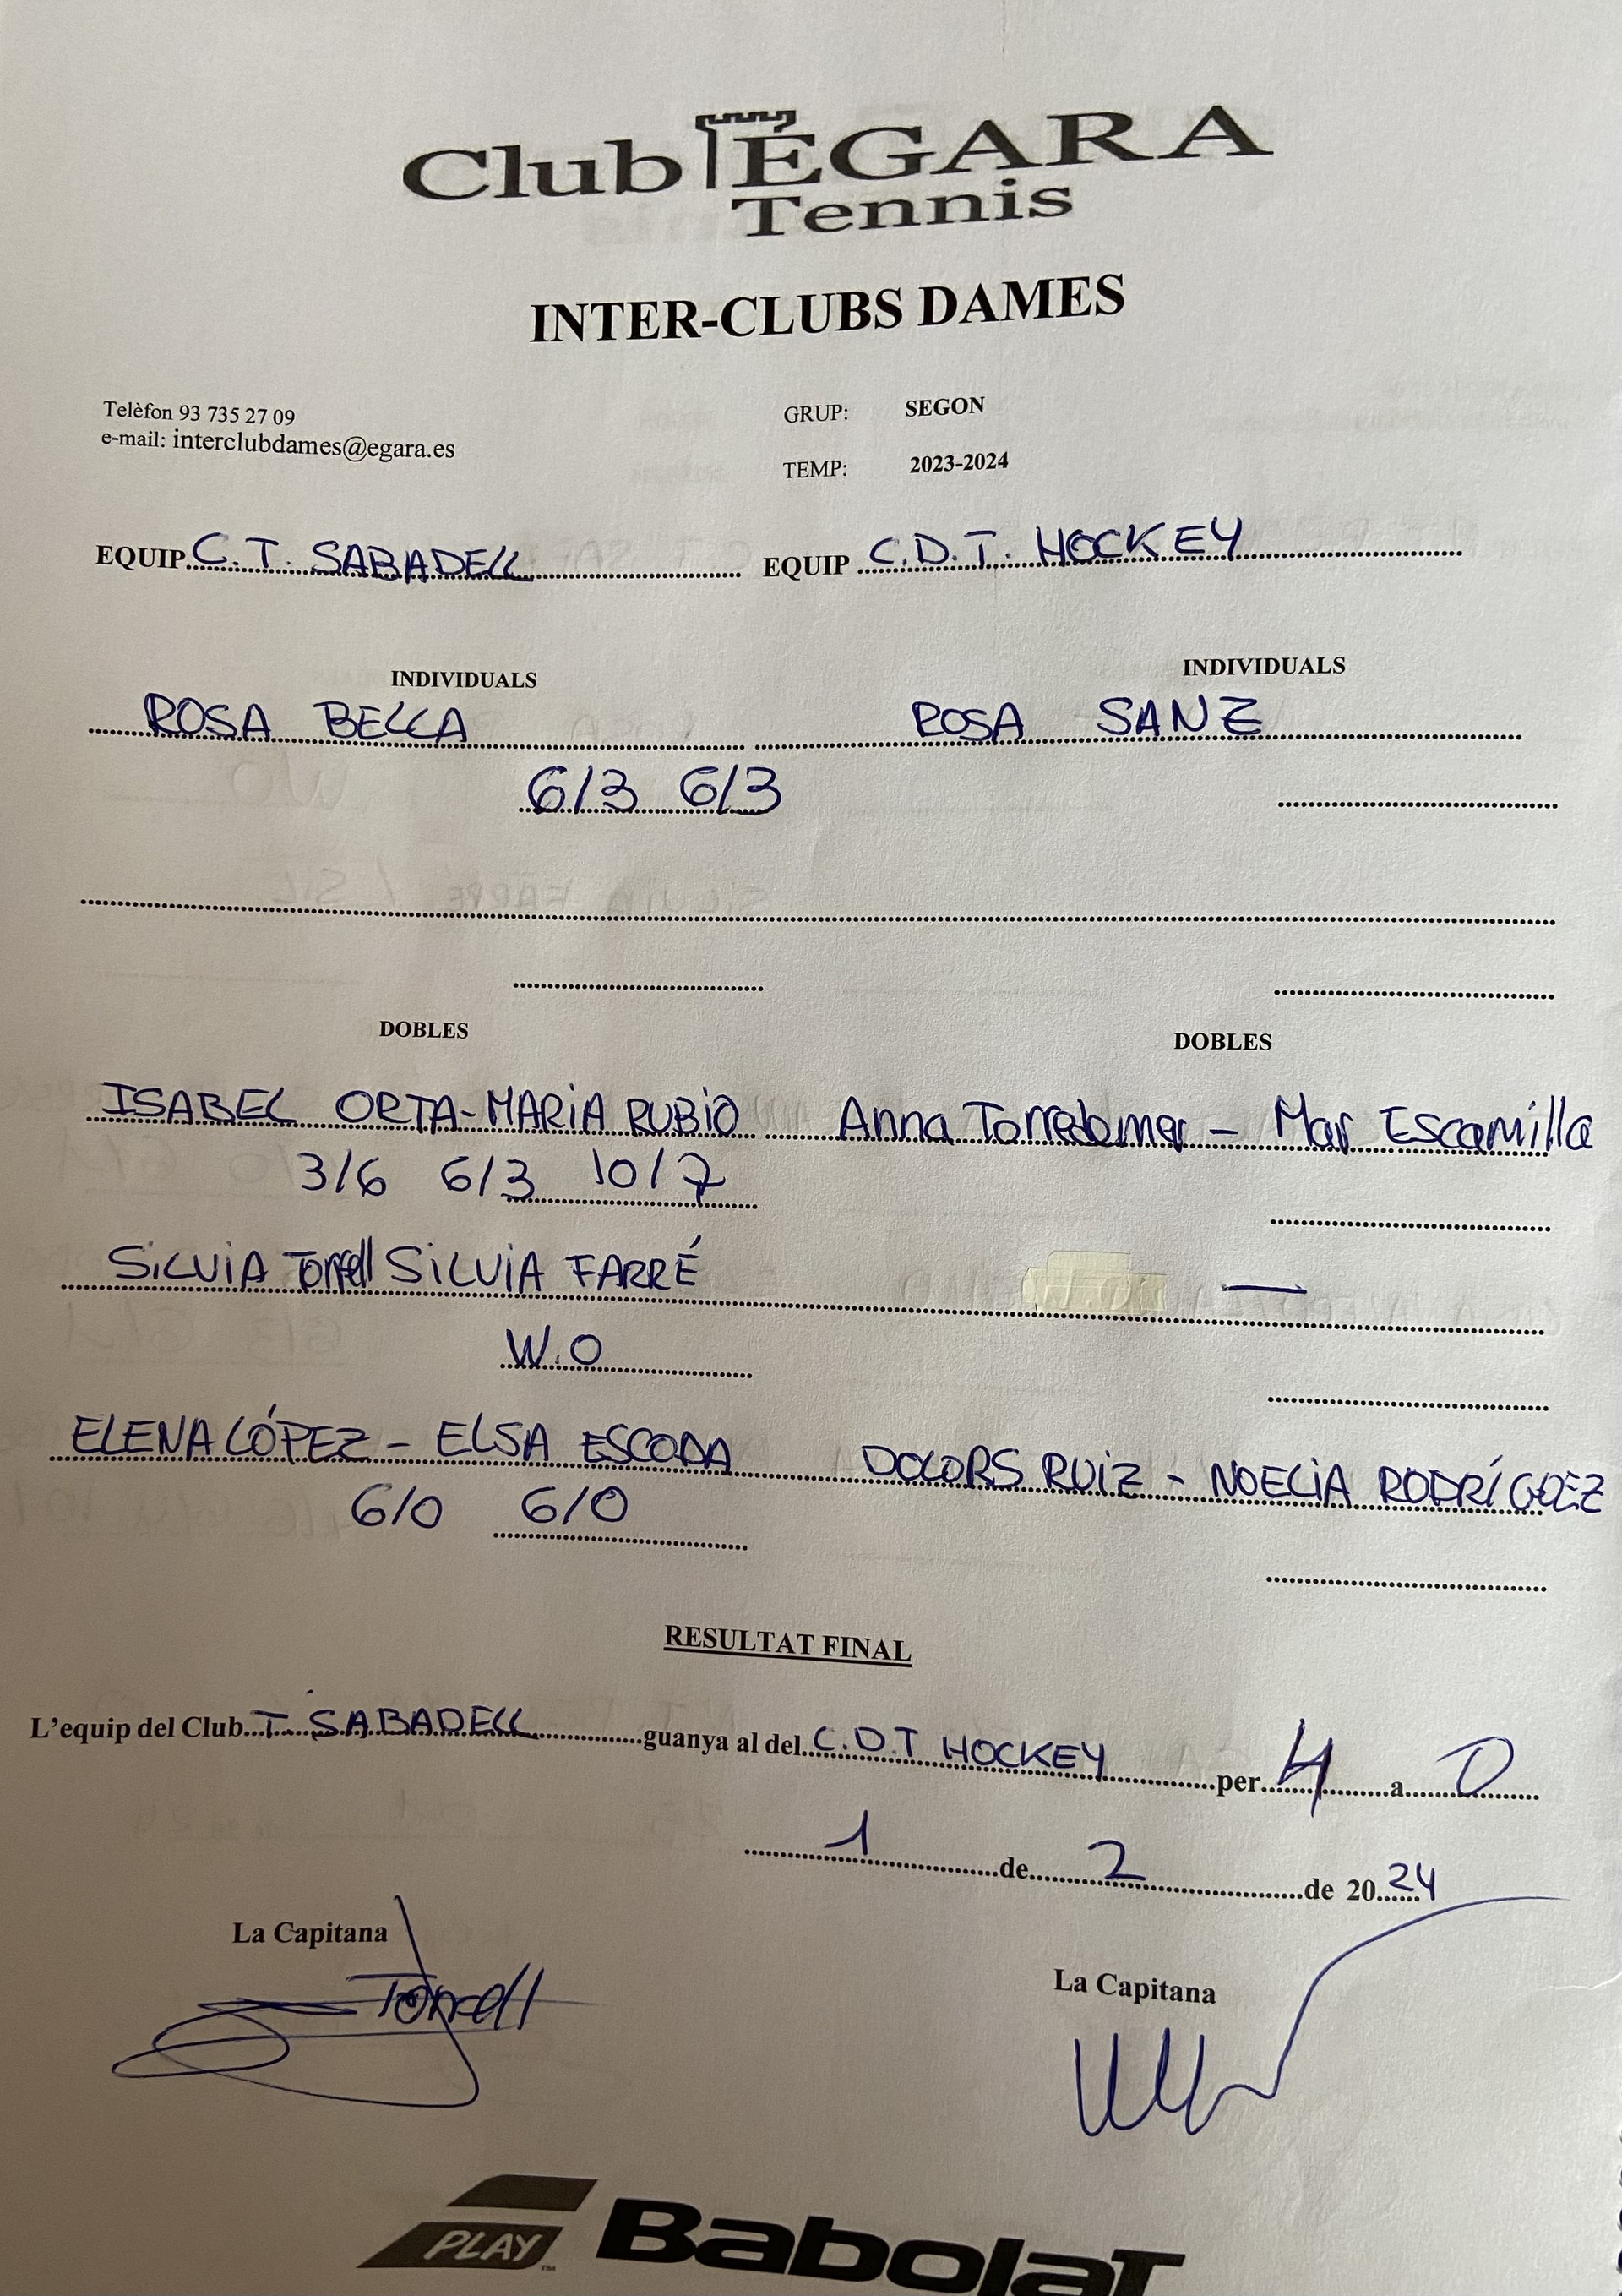 Club ÈGARA
Tennis
INTER-CLUBS DAMES
Telèfon 93 735 27 09
e-mail: interclubdames@egara.es
GRUP: SEGON
TEMP: 2023-2024
EQUIP C.T. SABADELL EQUIP C.D.T. HOCKEY
INDIVIDUALS INDIVIDUALS
ROSA BELLA ROSA SANZ
6/3 6/3
DOBLES DOBLES
ISABEL ORTA-MARIA RUBIO Anna Torredemer - Mar Escamilla
3/6 6/3 10/7
SILVIA Torrell SILVIA FARRÉ —
W.O
ELENA LÓPEZ - ELSA ESCODA DOLORS RUIZ - NOELIA RODRÍGUEZ
6/0 6/0
RESULTAT FINAL
L'equip del Club T. SABADELL guanya al del C.D.T HOCKEY per 4 a 0
1 de 2 de 2024
La Capitana La Capitana
Torrell
PLAY Babolat